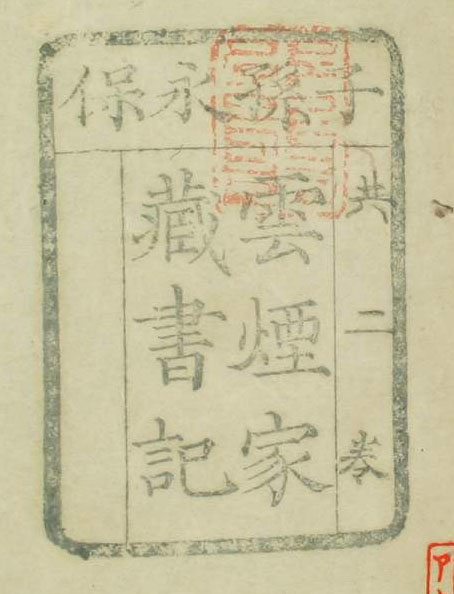 子孫永保
共二卷
雲煙家
藏書記